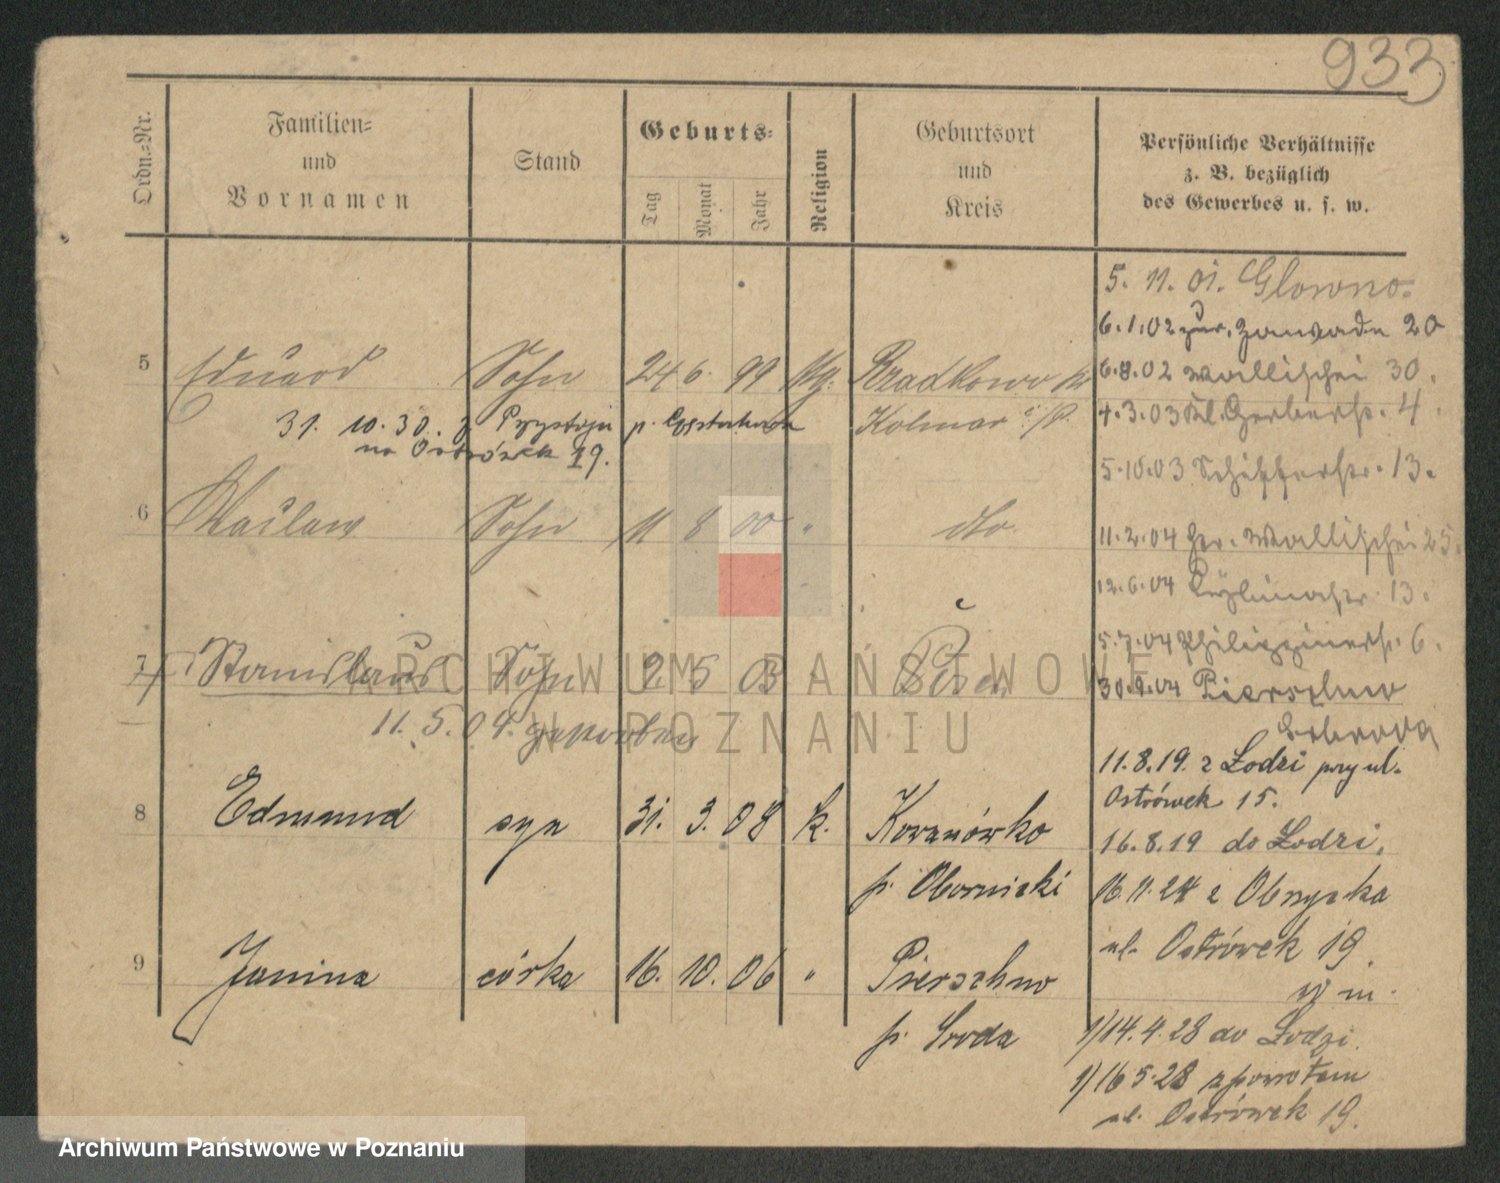 933
Ordn.=Nr.
Familien=
und
Vornamen
Stand
Geburts=
Tag
Monat
Jahr
Religion
Geburtsort
und
Kreis
Persönliche Verhältnisse
z. B. bezüglich
des Gewerbes u. s. w.
5. 11. 01. Glowno.
6.1.02 zur. Zawade 20
5 Eduard Sohn 24 6. 99 Kolmar i/P.
6.8.02 Wallischei 30.
4.3.03 Kl. Gerberstr. 4.
31. 10. 30. z Przystajń p. Częstochowa
na Ostrówek 19.
5.10.03 Schifferstr. 13.
6 Waclaw Sohn 11 8 00 " dto.
11.2.04 Wallischei 25.
12.6.04 13.
5.7.04 6.
7 Stanislaus Sohn 2 5 03 Posen
30.9.04 Pierschno
11. 5. 04. gestorben
11.8.19. z Łodzi przy ul.
Ostrówek 15.
8 Edmund syn 31. 3. 08 k. Kowanówko
p. Obornicki
16.8.19 do Łodzi.
16.11.24 z Obrzycka
ul. Ostrówek 19.
w m.
9 Janina córka 16. 10. 06 " Pierschno
p. Sroda
1) 14.4.28 do Łodzi.
1) 16 5.28 z powrotem
ul. Ostrówek 19.
ARCHIWUM PAŃSTWOWE
W POZNANIU
Archiwum Państwowe w Poznaniu